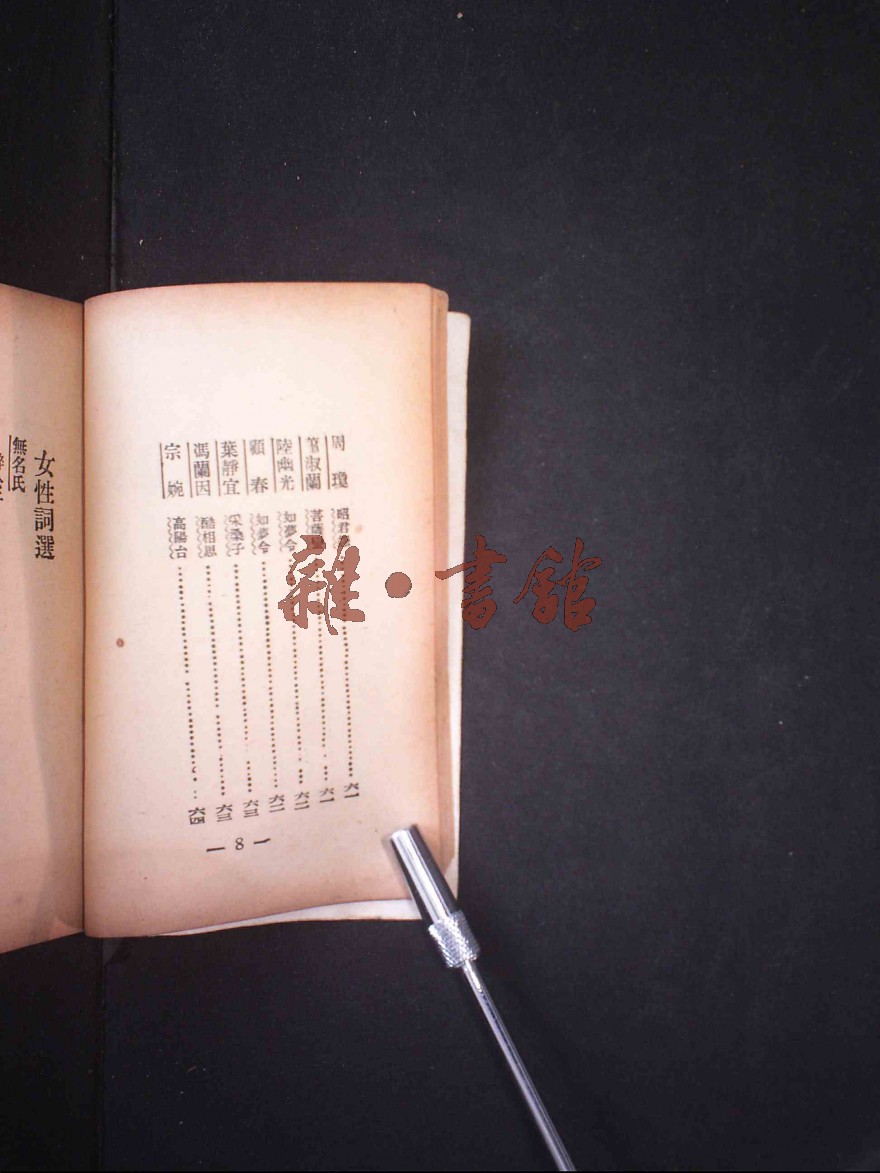 周瓊 昭君……六一
筆淑蘭 菩薩……六一
陸幽光 如夢令……六二
顧春 如夢令……六二
葉靜宜 采桑子……六三
馮蘭因 酷相思……六三
宗婉 高陽台……六四
— 8 —
女性詞選
無名氏
雜·書館